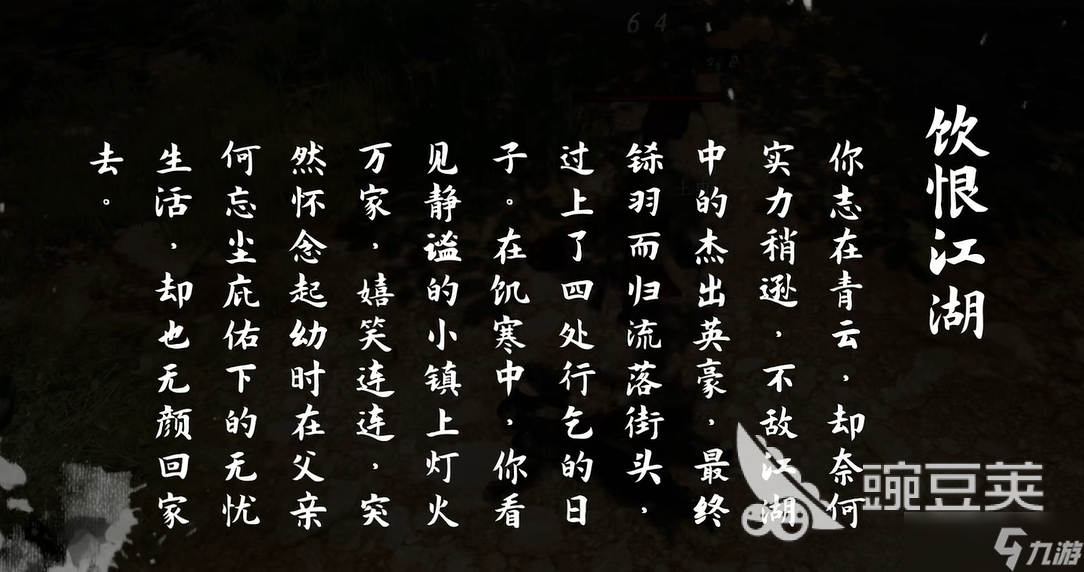 饮恨江湖
你志在青云，却奈何
实力稍逊，不敌江湖
中的杰出英豪，最终
铩羽而归流落街头，
过上了四处行乞的日
子。在饥寒中，你看
见静谧的小镇上灯火
万家，嬉笑连连，突
然怀念起幼时在父亲
何忘尘庇佑下的无忧
生活，却也无颜回家
去。
64
豌豆荚
九游